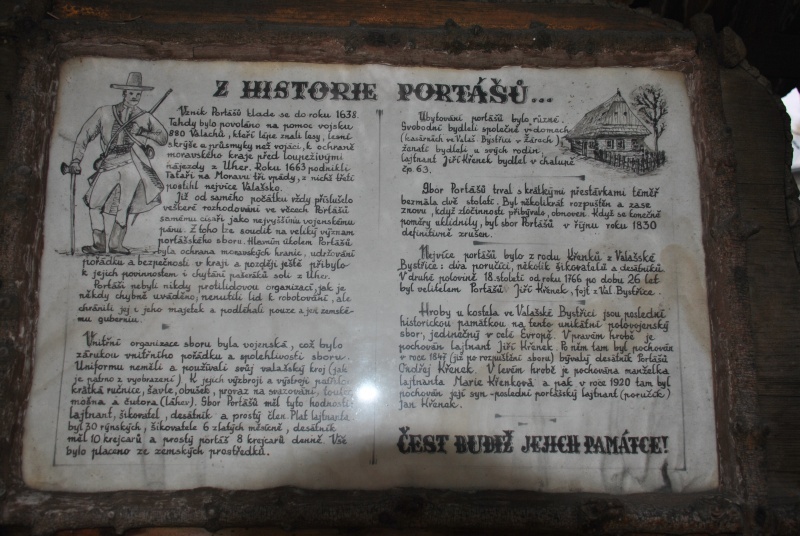 Z HISTORIE PORTÁŠŮ...
Vznik Portášů klade se do roku 1638.
Tehdy bylo povoláno na pomoc vojsku
880 Valachů, kteří lépe znali lesy, lesní
skrýše a průsmyky než vojáci, k ochraně
moravského kraje před loupeživými
nájezdy z Uher. Roku 1663 podnikli
Tataři na Moravu tři vpády, z nichž třetí
postihl nejvíce Valašsko.
Již od samého počátku vždy příslušelo
veškeré rozhodování ve věcech Portášů
samému císaři jako nejvyššímu vojenskému
pánu. Z toho lze soudit na veliký význam
portášského sboru. Hlavním úkolem Portášů
byla ochrana moravských hranic, udržování
pořádku a bezpečnosti v kraji a později ještě přibylo
k jejich povinnostem i chytání pašeráků soli z Uher.
Portáši nebyli nikdy protilidovou organizací, jak je
někdy chybně uváděno, nenutili lid k robotování, ale
chránili jej i jeho majetek a podléhali pouze a jen zemské-
mu guberniu.
Vnitřní organizace sboru byla vojenská, což bylo
zárukou vnitřního pořádku a spolehlivosti sboru.
Uniformu neměli a používali svůj valašský kroj (jak
je patrno z vyobrazení). K jejich výzbroji a výstroji patřilo:
krátká ručnice, šavle, obušek, provaz na svazování,
mošna a čutora (láhev). Sbor Portášů měl tyto hodnosti:
lajtnant, šikovatel, desátník a prostý člen. Plat lajtnanta
byl 30 rýnských, šikovatele 6 zlatých měsíčně, desátník
měl 10 krejcarů a prostý portáš 8 krejcarů denně. Vše
bylo placeno ze zemských prostředků.
Ubytování portášů bylo různé.
Svobodní bydleli společně v domech
(kasárnách ve Valaš. Bystřici v Žárech)
ženatí bydleli u svých rodin,
lajtnant Jiří Křenek bydlel v chalupě
čp. 63.
Sbor Portášů trval s krátkými přestávkami téměř
bezmála dvě století. Byl několikrát rozpuštěn a zase
znovu, když zločinnosti přibývalo, obnoven. Když se konečně
poměry uklidnily, byl sbor Portášů v říjnu roku 1830
definitivně zrušen.
Nejvíce portášů bylo z rodu Křenků z Valašské
Bystřice: dva poručíci, několik šikovatelů a desátníků.
V druhé polovině 18. století od roku 1766 po dobu 26 let
byl velitelem Portášů Jiří Křenek, fojt z Val. Bystřice.
Hroby u kostela ve Valašské Bystřici jsou poslední
historickou památkou na tento unikátní polovojenský
sbor, jedinečný v celé Evropě. V pravém hrobě je
pochován lajtnant Jiří Křenek. Po něm tam byl pochován
v roce 1847 (již po rozpuštění sboru) bývalý desátník Portášů
Ondřej Křenek. V levém hrobě je pochována manželka
lajtnanta Marie Křenková a pak v roce 1920 tam byl
pochován její syn - poslední portášský lajtnant (poručík)
Jan Křenek.
ČEST BUDIŽ JEJICH PAMÁTCE!